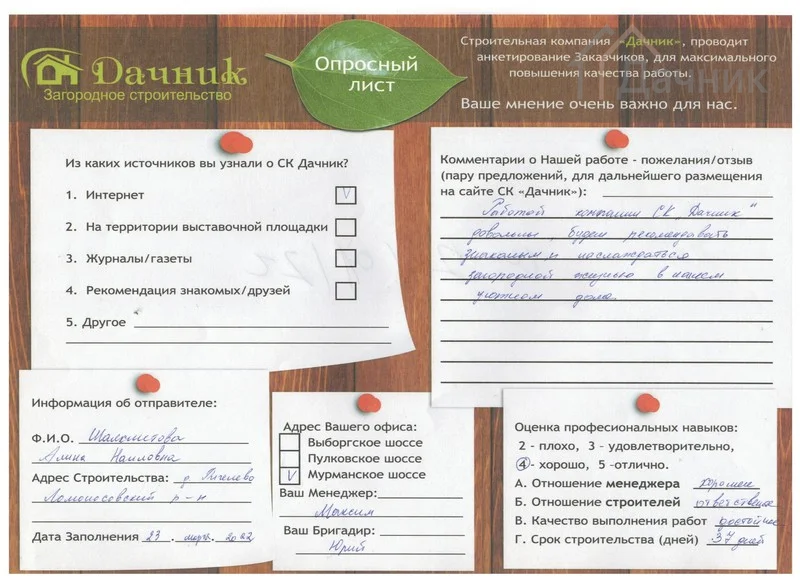 Дачник
Загородное строительство
Опросный
лист
Строительная компания «Дачник», проводит
анкетирование Заказчиков, для максимального
повышения качества работы.
Ваше мнение очень важно для нас.
Дачник
Из каких источников вы узнали о СК Дачник?
1. Интернет V
2. На территории выставочной площадки
3. Журналы/газеты
4. Рекомендация знакомых/друзей
5. Другое
Комментарии о Нашей работе - пожелания/отзыв
(пару предложений, для дальнейшего размещения
на сайте СК «Дачник»):
Работой компании СК „Дачник"
довольны, будем рекомендовать
знакомым и наслаждаться
загородной жизнью в нашем
уютном доме.
Информация об отправителе:
Ф.И.О.
Алина Наиловна
Адрес Строительства: д.
Ломоносовский р-н
Дата Заполнения 23 . марта . 2022
Адрес Вашего офиса:
Выборгское шоссе
Пулковское шоссе
V Мурманское шоссе
Ваш Менеджер:
Максим
Ваш Бригадир:
Юрий
Оценка профессиональных навыков:
2 - плохо, 3 - удовлетворительно,
4 - хорошо, 5 -отлично.
А. Отношение менеджера хорошее
Б. Отношение строителей ответственное
В. Качество выполнения работ достойное
Г. Срок строительства (дней) 37 дней